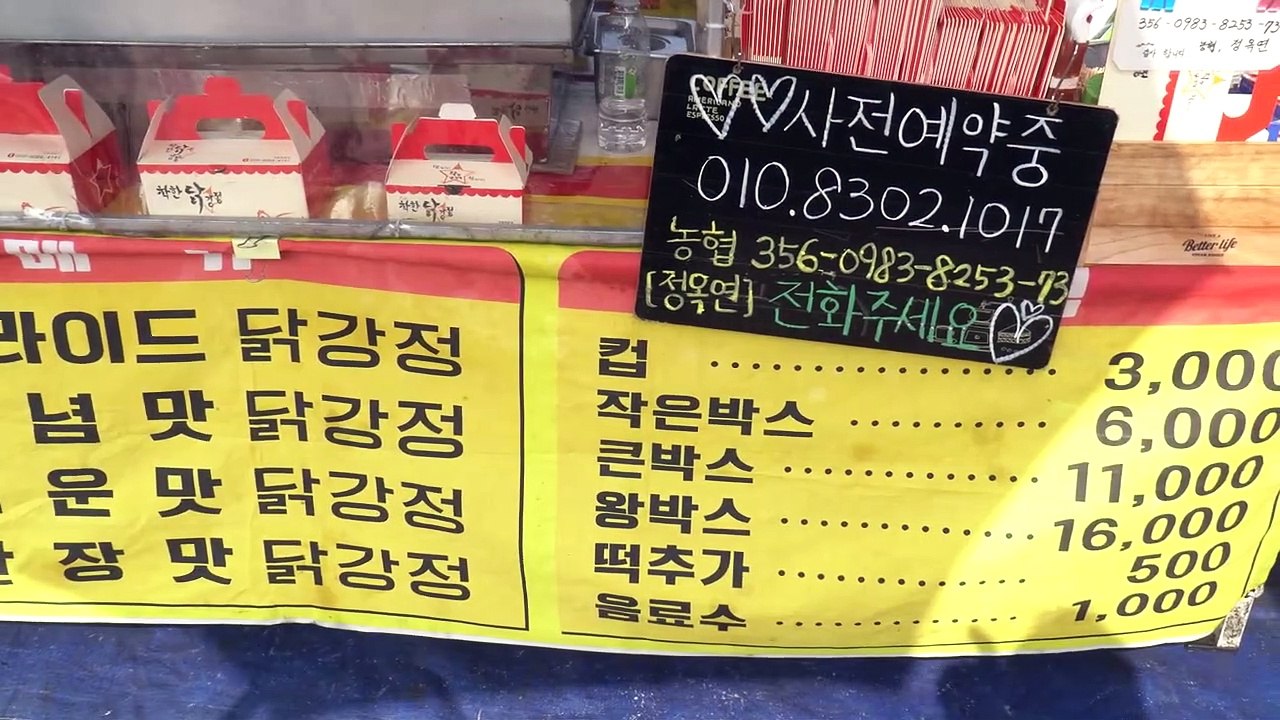 356-0983-8253-73
농협, 정옥연
COFFEE
AMERICANO
LATTE
ESPRESSO
사전예약중
010.8302.1017
농협 356-0983-8253-73
[정옥연] 전화주세요
Better life
착한 닭강정
착한 닭강정
메
라이드 닭강정
념 맛 닭강정
운 맛 닭강정
장 맛 닭강정
컵 3,000
작은박스 6,000
큰박스 11,000
왕박스 16,000
떡추가 500
음료수 1,000